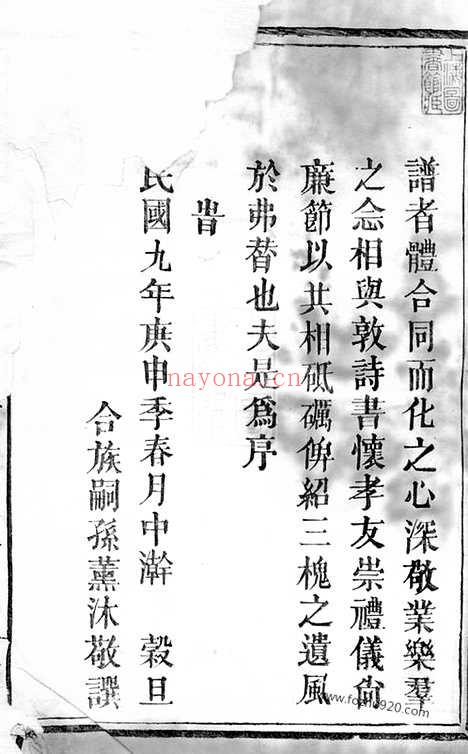 譜者體合同而化之心深敬業樂羣
之念相與敦詩書懷孝友崇禮儀尙
廉節以共相砥礪俾紹三槐之遺風
於弗替也夫是爲序
旹
民國九年庚申季春月中澣 穀旦
合族嗣孫薰沐敬譔
nayona.cn
www.fozhu920.com